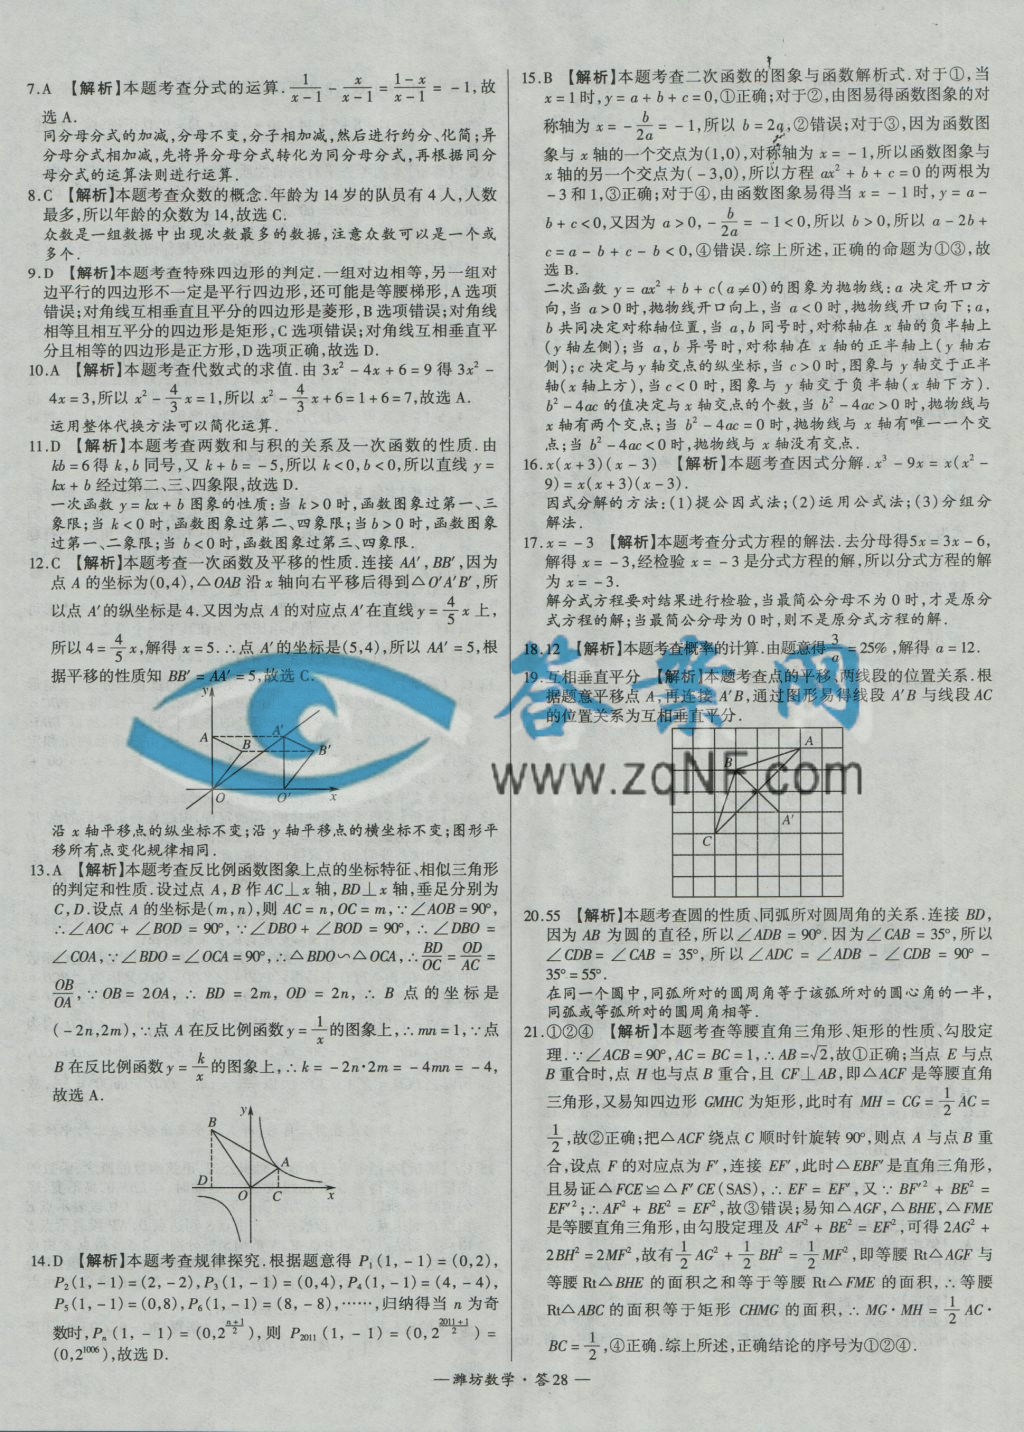 7.A 【解析】本题考查分式的运算.1/(x-1) - x/(x-1) = (1-x)/(x-1) = -1,故
选 A.
同分母分式的加减,分母不变,分子相加减,然后进行约分、化简;异
分母分式相加减,先将异分母分式转化为同分母分式,再根据同分
母分式的运算法则进行运算.
8.C 【解析】本题考查众数的概念.年龄为 14 岁的队员有 4 人,人数
最多,所以年龄的众数为 14,故选 C.
众数是一组数据中出现次数最多的数据,注意众数可以是一个或
多个.
9.D 【解析】本题考查特殊四边形的判定.一组对边相等,另一组对
边平行的四边形不一定是平行四边形,还可能是等腰梯形,A 选项
错误;对角线互相垂直且平分的四边形是菱形,B 选项错误;对角线
相等且相互平分的四边形是矩形,C 选项错误;对角线互相垂直平
分且相等的四边形是正方形,D 选项正确,故选 D.
10.A 【解析】本题考查代数式的求值.由 3x²-4x+6=9 得 3x²-
4x=3,所以 x²-4/3 x=1,所以 x²-4/3 x+6=1+6=7,故选 A.
运用整体代换方法可以简化运算.
11.D 【解析】本题考查两数和与积的关系及一次函数的性质.由
kb=6 得 k,b 同号,又 k+b=-5,所以 k<0,b<0,所以直线 y=
kx+b 经过第二、三、四象限,故选 D.
一次函数 y=kx+b 图象的性质:当 k>0 时,函数图象过第一、三
象限;当 k<0 时,函数图象过第二、四象限;当 b>0 时,函数图象
过第一、二象限;当 b<0 时,函数图象过第三、四象限.
12.C 【解析】本题考查一次函数及平移的性质.连接 AA′,BB′,因为
点 A 的坐标为(0,4),△OAB 沿 x 轴向右平移后得到△O′A′B′,所
以点 A′的纵坐标是 4.又因为点 A 的对应点 A′在直线 y=4/5 x 上,
所以 4=4/5 x,解得 x=5.∴点 A′的坐标是(5,4),所以 AA′=5,根
据平移的性质知 BB′=AA′=5,故选 C.
y
A A′
B B′
O O′ x
沿 x 轴平移点的纵坐标不变;沿 y 轴平移点的横坐标不变;图形平
移所有点变化规律相同.
13.A 【解析】本题考查反比例函数图象上点的坐标特征、相似三角形
的判定和性质.设过点 A,B 作 AC⊥x 轴,BD⊥x 轴,垂足分别为
C,D.设点 A 的坐标是(m,n),则 AC=n,OC=m,∵∠AOB=90°,
∴∠AOC+∠BOD=90°,∵∠DBO+∠BOD=90°,∴∠DBO=
∠COA,∵∠BDO=∠OCA=90°,∴△BDO∽△OCA,∴BD/OC=OD/AC=
OB/OA,∵OB=2OA,∴BD=2m,OD=2n,∴B 点的坐标是
(-2n,2m),∵点 A 在反比例函数 y=1/x 的图象上,∴mn=1,∵点
B 在反比例函数 y=k/x 的图象上,∴k=-2n·2m=-4mn=-4,
故选 A.
y
B
A
D O C x
14.D 【解析】本题考查规律探究.根据题意得 P₁(1,-1)=(0,2),
P₂(1,-1)=(2,-2),P₃(1,-1)=(0,4),P₄(1,-1)=(4,-4),
P₅(1,-1)=(0,8),P₆(1,-1)=(8,-8),……,归纳得当 n 为奇
数时,Pₙ(1,-1)=(0,2^((n+1)/2)),则 P₂₀₁₁(1,-1)=(0,2^((2011+1)/2))=
(0,2¹⁰⁰⁶),故选 D.
15.B 【解析】本题考查二次函数的图象与函数解析式.对于①,当
x=1 时,y=a+b+c=0,①正确;对于②,由图易得函数图象的对
称轴为 x=-b/2a=-1,所以 b=2a,②错误;对于③,因为函数图
象与 x 轴的一个交点为(1,0),对称轴为 x=-1,所以函数图象与
x 轴的另一个交点为(-3,0),所以方程 ax²+bx+c=0 的两根为
-3 和 1,③正确;对于④,由函数图象易得当 x=-1 时,y=a-
b+c<0,又因为 a>0,-b/2a=-1<0,所以 b>0,所以 a-2b+
c=a-b+c-b<0,④错误.综上所述,正确的命题为①③,故
选 B.
二次函数 y=ax²+b+c(a≠0)的图象为抛物线:a 决定开口方
向,当 a>0 时,抛物线开口向上,当 a<0 时,抛物线开口向下;a,
b 共同决定对称轴位置,当 a,b 同号时,对称轴在 x 轴的负半轴上
(y 轴左侧);当 a,b 异号时,对称轴在 x 轴的正半轴上(y 轴右
侧);c 决定与 y 轴交点的纵坐标,当 c>0 时,图象与 y 轴交于正半
轴(x 轴上方),当 c<0 时,图象与 y 轴交于负半轴(x 轴下方).
b²-4ac 的值决定与 x 轴交点的个数,当 b²-4ac>0 时,抛物线与
x 轴有两个交点;当 b²-4ac=0 时,抛物线与 x 轴有唯一一个交
点;当 b²-4ac<0 时,抛物线与 x 轴没有交点.
16.x(x+3)(x-3) 【解析】本题考查因式分解.x³-9x=x(x²-
9)=x(x+3)(x-3).
因式分解的方法:(1)提公因式法;(2)运用公式法;(3)分组分
解法.
17.x=-3 【解析】本题考查分式方程的解法.去分母得5x=3x-6,
解得 x=-3,经检验 x=-3 是分式方程的解,所以分式方程的解
为 x=-3.
解分式方程要对结果进行检验,当最简公分母不为 0 时,才是原分
式方程的解;当最简公分母为 0 时,则不是原分式方程的解.
18.12 【解析】本题考查概率的计算.由题意得 3/a=25%,解得 a=12.
19.互相垂直平分 【解析】本题考查点的平移、两线段的位置关系.根
据题意平移点 A,再连接 A′B,通过图形易得线段 A′B 与线段 AC
的位置关系为互相垂直平分.
答案网
www.zqNF.com
A
B
A′
C
20.55 【解析】本题考查圆的性质、同弧所对圆周角的关系.连接 BD,
因为 AB 为圆的直径,所以∠ADB=90°.因为∠CAB=35°,所以
∠CDB=∠CAB=35°,所以∠ADC=∠ADB-∠CDB=90°-
35°=55°.
在同一个圆中,同弧所对的圆周角等于该弧所对的圆心角的一半,
同弧或等弧所对的圆周角相等.
21.①②④ 【解析】本题考查等腰直角三角形、矩形的性质、勾股定
理.∵∠ACB=90°,AC=BC=1,∴AB=√2,故①正确;当点 E 与点
B 重合时,点 H 也与点 B 重合,且 CF⊥AB,即△ACF 是等腰直角
三角形,又易知四边形 GMHC 为矩形,此时有 MH=CG=1/2 AC=
1/2,故②正确;把△ACF 绕点 C 顺时针旋转 90°,则点 A 与点 B 重
合,设点 F 的对应点为 F′,连接 EF′,此时△EBF′是直角三角形,
且易证△FCE≌△F′CE(SAS),∴EF=EF′,又∵BF′²+BE²=
EF′²;∴AF²+BE²=EF²,故③错误;易知△AGF,△BHE,△FME
是等腰直角三角形,由勾股定理及 AF²+BE²=EF²,可得 2AG²+
2BH²=2MF²,故有 1/2 AG²+1/2 BH²=1/2 MF²,即等腰 Rt△AGF 与
等腰 Rt△BHE 的面积之和等于等腰 Rt△FME 的面积,∴等腰
Rt△ABC 的面积等于矩形 CHMG 的面积,∴MG·MH=1/2 AC·
BC=1/2,④正确.综上所述,正确结论的序号为①②④.
—潍坊数学·答28—